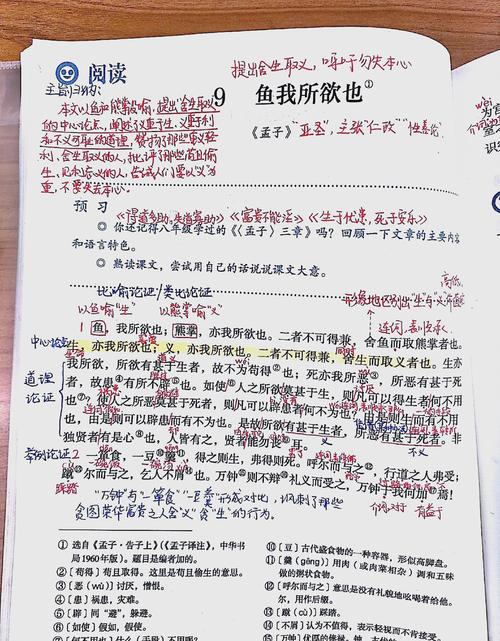 阅读
提出舍生取义,呼吁勿失本心
主旨归纳:
9 鱼我所欲也①
本文以鱼和熊掌设喻,提出"舍生取义"
的中心论点,阐述了重于生、义重于利
和不义可耻的道理,赞扬了那些重义轻
利、舍生取义的人,批评了那些苟且偷
生、见利忘义的人,告诫人们要以义为
重,不要失去本心。
《孟子》"亚圣",主张"仁政""性善论"
预习
《得道多助,失道寡助》《富贵不能淫》《生于忧患,死于安乐》
◎ 你还记得八年级学过的《〈孟子〉三章》吗?回顾一下文章的主要内容
和语言特色。
◎ 熟读课文,尝试用自己的话说说课文大意。
比喻论证/类比论证
以鱼喻"生" 以熊掌喻"义"
1 鱼,我所欲也;熊掌,亦我所欲也。二者不可得兼,舍鱼而取熊掌者也。
中心论点
生,亦我所欲也;义,亦我所欲也。二者不可得兼,舍生而取义者也。生亦
我所欲,所欲有甚于生者,故不为苟得②也;死亦我所恶③,所恶有甚于死
道理论证
者,故患④有所不辟⑤也。如使⑥人之所欲莫甚于生,则凡可以得生者何不用
也⑦?使人之所恶莫甚于死者,则凡可以辟患者何不为也?由是则生而有不用
也,由是则可以辟患而有不为也。是故所欲有甚于生者,所恶有甚于死者。非
独贤者有是心⑧也,人皆有之,贤者能勿丧耳。
举例论证 2
一箪食,一豆⑩羹⑪,得之则生,弗得则死。呼尔而与之⑫,行道之人弗受;
蹴⑬尔而与之,乞人不屑⑭也。万钟⑮则不辩礼义而受之,万钟于我何加⑯焉!
"万钟"与"一箪食""一豆羹"形成对比,讽刺了那些
贪图荣华富贵之人舍"义"贪"生"的行为。
① 选自《孟子·告子上》(《孟子译注》,中华书
局1960年版)。题目是编者加的。
② 〔苟得〕苟且取得。这里是苟且偷生的意思。
③ 〔恶(wù)〕讨厌,憎恨。
④ 〔患〕祸患,灾难。
⑤ 〔辟〕同"避",躲避。
⑥ 〔如使〕假如,假使。
⑩ 〔豆〕古代盛食物的一种容器,形似高脚盘。
⑪ 〔羹(gēng)〕用肉(或肉菜相杂)调和五味
做的粥状食物。
⑫ 〔呼尔而与之〕意思是没有礼貌地吆喝着给他。
尔,用作后缀。
⑬ 〔蹴(cù)〕踩踏。
⑭ 〔不屑〕认为不值得,表示轻视而不肯接受。